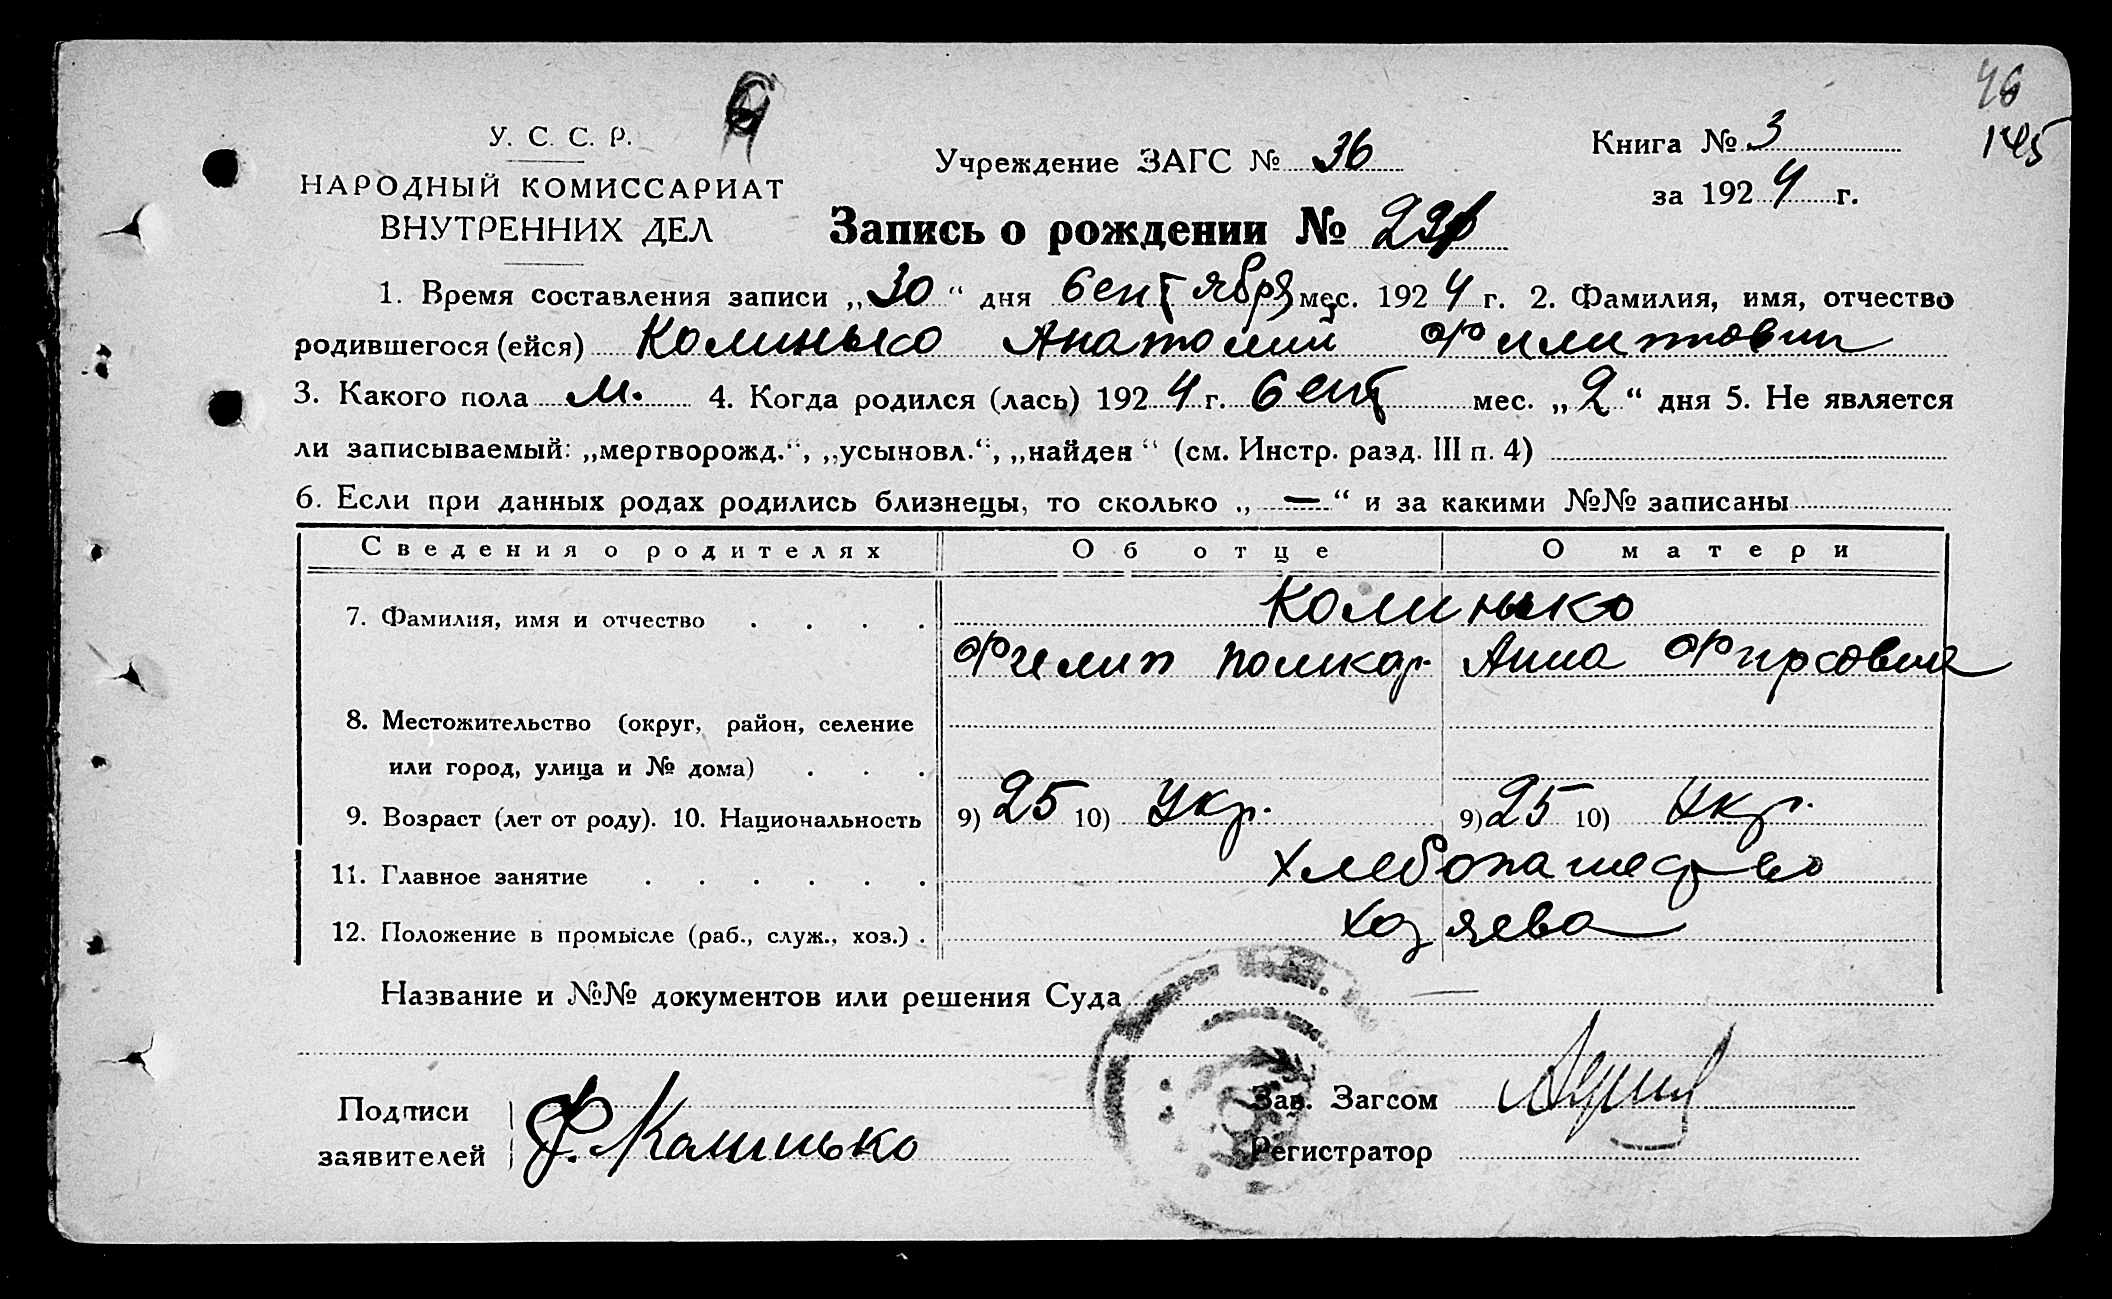 46
145
У. С. С. Р.
НАРОДНЫЙ КОМИССАРИАТ
ВНУТРЕННИХ ДЕЛ
Учреждение ЗАГС № 36
Книга № 3
за 1924 г.
Запись о рождении №
1. Время составления записи „30“ дня Сентября мес. 1924 г. 2. Фамилия, имя, отчество
родившегося (ейся) Колинько Анатолий Филиппович
3. Какого пола м. 4. Когда родился (лась) 1924 г. Сент мес. „2“ дня 5. Не является
ли записываемый: „мертворожд.“, „усыновл.“, „найден“ (см. Инстр. разд. III п. 4)
6. Если при данных родах родились близнецы, то сколько „—“ и за какими №№ записаны
Сведения о родителях Об отце О матери
7. Фамилия, имя и отчество . . . . Колинько
Филип Поликар. Анна Фирсовна
8. Местожительство (округ, район, селение
или город, улица и № дома) . . .
9. Возраст (лет от роду). 10. Национальность 9) 25 10) Укр. 9) 25 10) Укр.
11. Главное занятие . . . . . . Хлебопашество
12. Положение в промысле (раб., служ., хоз.) . Хозяева
Название и №№ документов или решения Суда —
Подписи
заявителей Ф. Колинько
Зав. Загсом
Регистратор